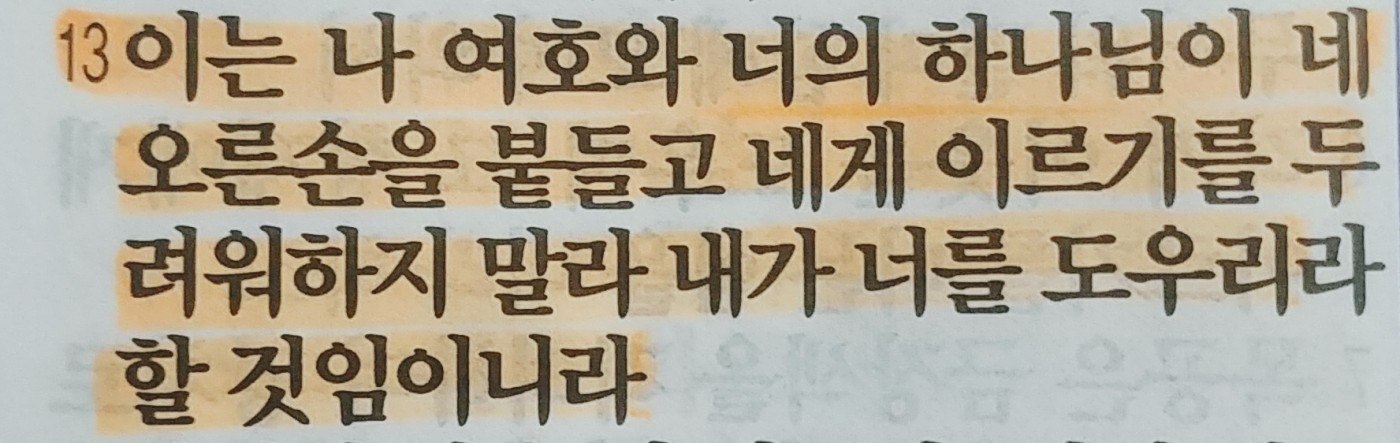 13 이는 나 여호와 너의 하나님이 네
오른손을 붙들고 네게 이르기를 두
려워하지 말라 내가 너를 도우리라
할 것임이니라